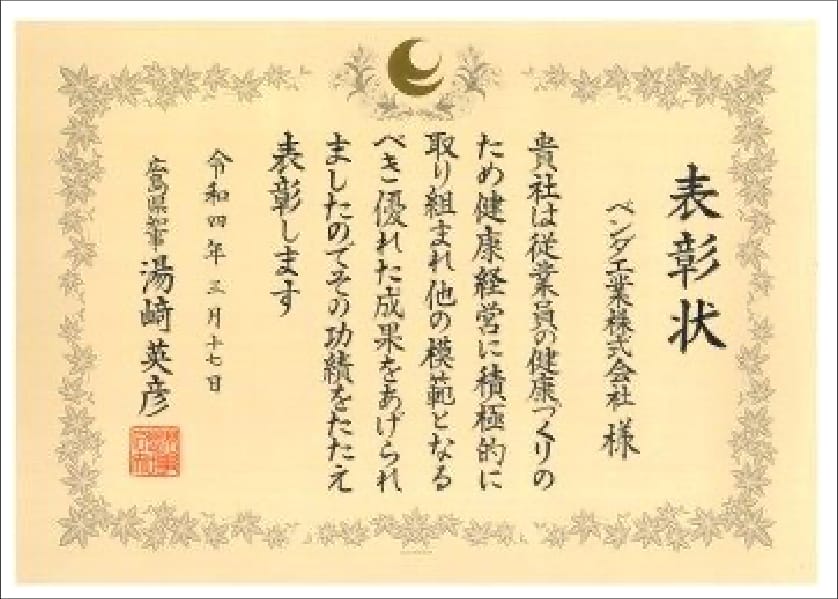 表彰状
ベンダ工業株式会社 様
貴社は従業員の健康づくりの
ため健康経営に積極的に
取り組まれ他の模範となる
べき優れた成果をあげられ
ましたのでその功績をたたえ
表彰します
令和四年三月十七日
広島県知事 湯﨑英彦